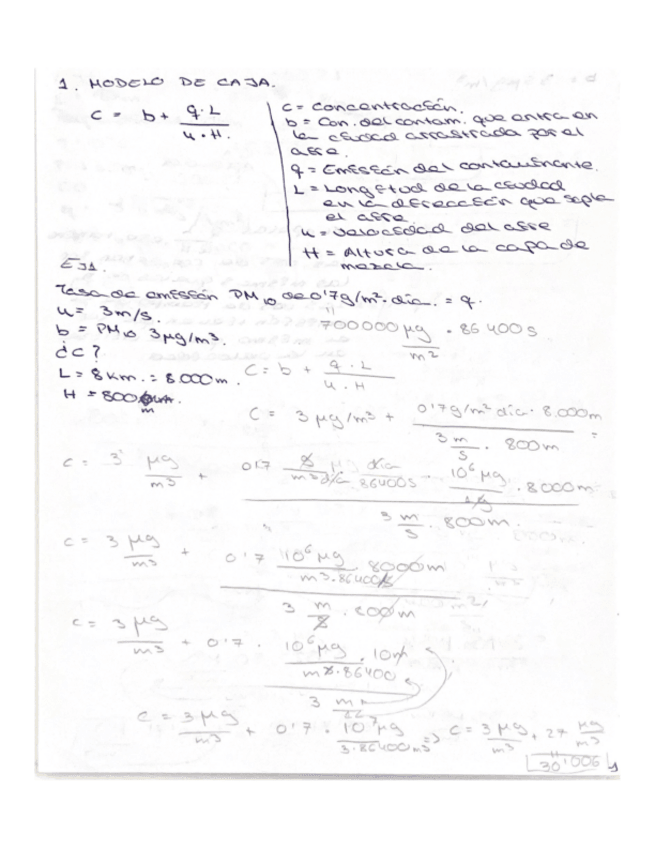 1. MODELO DE CAJA.
C = b + q·L / u·H.
C = Concentración.
b = Con. del contam. que entra en
la ciudad arrastrada por el
aire.
q = Emisión del contaminante.
L = Longitud de la ciudad
en la dirección que sopla
el aire.
u = Velocidad del aire
H = Altura de la capa de
mezcla.
EJ1.
Tasa de emisión PM10 de 0'7g/m²·día. = q.
u = 3m/s.
700000 µg / m² · 86400s
b = PM10 3µg/m³.
¿C?
L = 8km. = 8.000m.
C = b + q·L / u·H
H = 800 m.
C = 3 µg/m³ + 0'7g/m² día · 8.000m / 3 m/s · 800m =
C = 3 µg/m³ + 0'7 g/m² día · día/86400s · 10⁶ µg/1g · 8000m / 3 m/s · 800m.
C = 3 µg/m³ + 0'7 10⁶ µg/m³·86400s · 8000m / 3 m/s · 800m
C = 3 µg/m³ + 0'7 · 10⁶ µg/m²·86400 · 10m / 3 m
C = 3 µg/m³ + 0'7 · 10⁷ µg/3·86400 m³ => C = 3 µg/m³ + 27 µg/m³
30'006